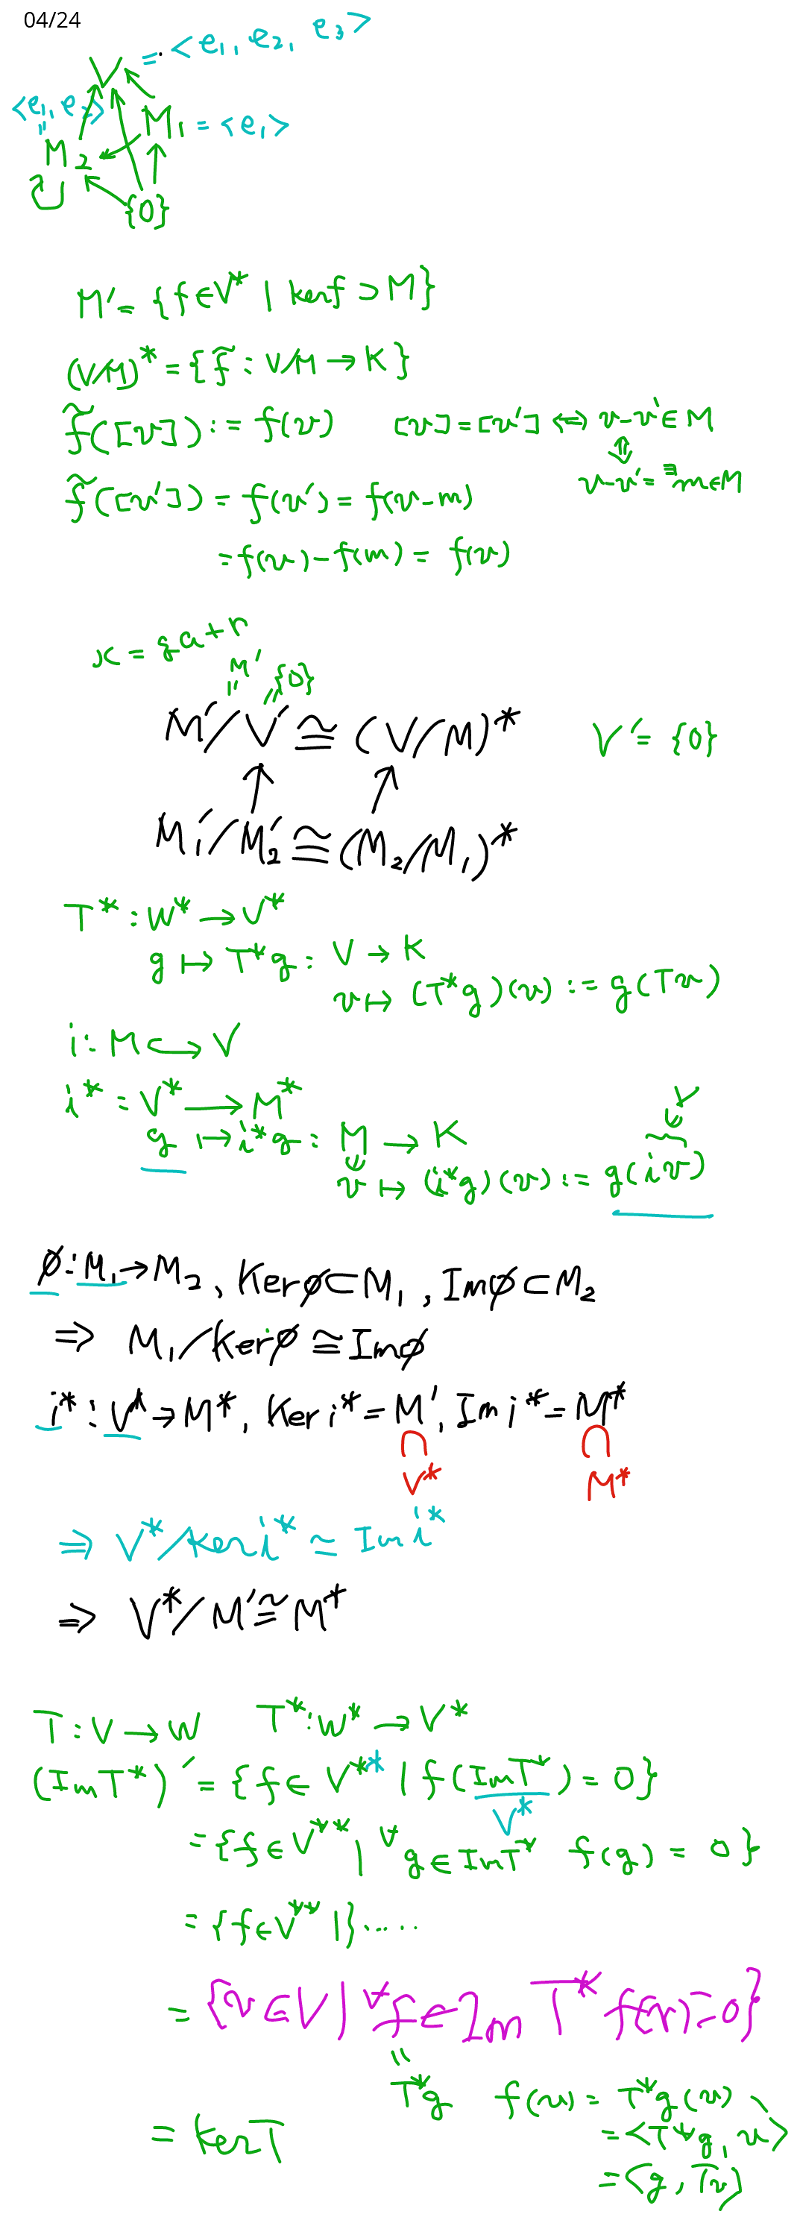 04/24
V = <e₁, e₂, e₃>
<e₁, e₂>
=
M₁ = <e₁>
M₂
{0}
M' = {f∈V* | ker f ⊃ M}
(V/M)* = {f̃ : V/M → K}
f̃([v]) := f(v)   [v]=[v'] ⇔ v-v'∈M
⇕
f̃([v']) = f(v') = f(v-m)   v-v' = ∃m∈M
= f(v) - f(m) = f(v)
x = qa+r
M' {0}
= =
M'/V' ≅ (V/M)*   V' = {0}
↑ ↑
M₁'/M₂' ≅ (M₂/M₁)*
T* : W* → V*
g ↦ T*g : V → K
v ↦ (T*g)(v) := g(Tv)
i : M ↪ V
i* : V* → M*   V
g ↦ i*g : M → K
v ↦ (i*g)(v) := g(iv)
ø : M₁ → M₂, Ker ø ⊂ M₁, Im ø ⊂ M₂
⇒ M₁/Ker ø ≅ Im ø
i* : V* → M*, Ker i* = M', Im i* = M*
∩ ∩
V* M*
⇒ V*/Ker i* ≃ Im i*
⇒ V*/M' ≅ M*
T : V → W   T* : W* → V*
(Im T*)' = {f ∈ V** | f(Im T*) = 0}
V*
= {f∈V** | ∀g∈Im T* f(g) = 0}
= {f∈V** | }.....
= {v∈V | ∀f∈Im T* f(v)=0}
=
T*g   f(v) = T*g(v)
= <T*g, v>
= ker T
= <g, Tv>